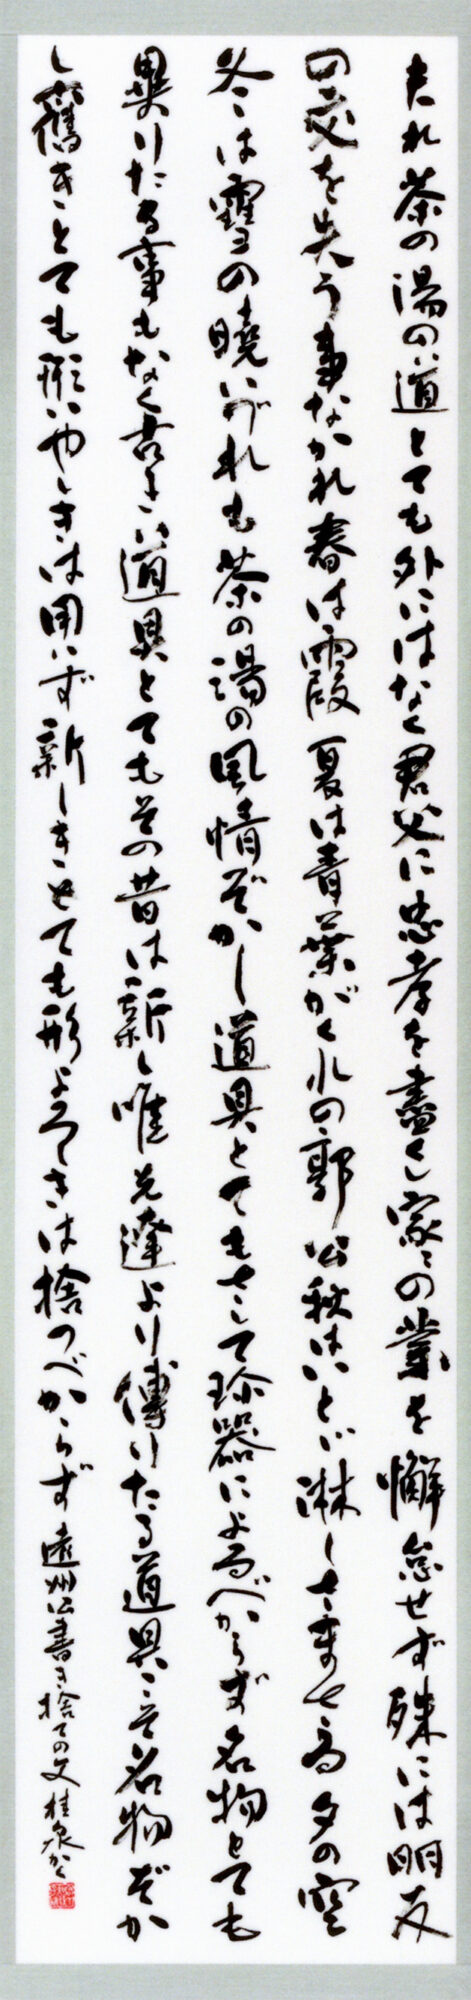 夫れ茶の湯の道とても外にはなく君父に忠孝を盡くし家々の業を懈怠せず殊には朋友
の交を失う事なかれ春は霞夏は青葉がくれの郭公秋はいとゞ淋しさまさる夕の空
冬は雪の曉いづれも茶の湯の風情ぞかし道具とてもさして珍器によるべからず名物とても
異りたる事もなく古き道具とてもその昔は新し唯先達より傳りたる道具こそ名物ぞか
し舊きとても形いやしきは用いず新しきとても形よろしきは捨つべからず 遠州公書き捨ての文 桂泉かく